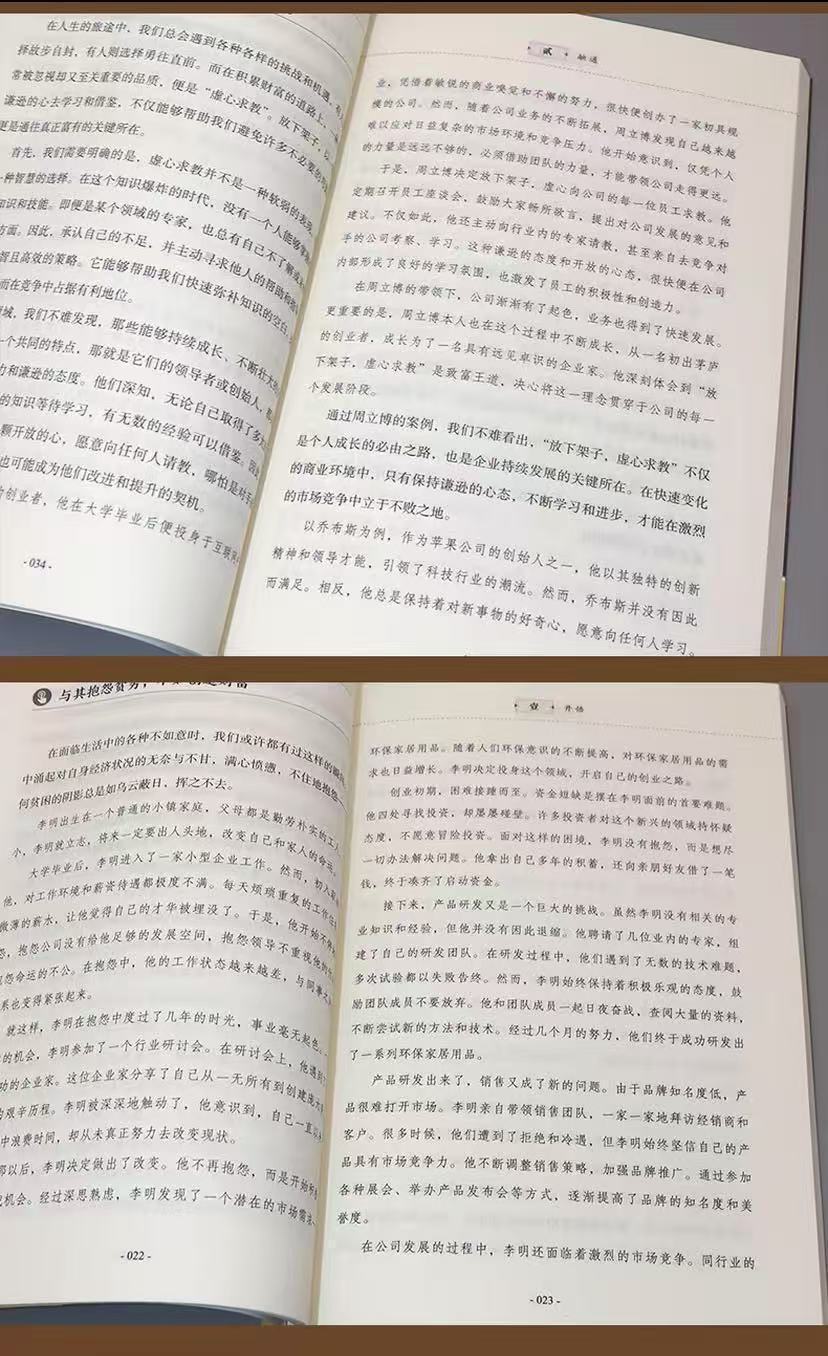 在人生的旅途中，我们总会遇到各种各样的挑战和机遇，有人
择故步自封，有人则选择勇往直前。而在积累财富的道路上，
常被忽视却又至关重要的品质，便是“虚心求教”。放下架子，以
谦逊的心去学习和借鉴，不仅能够帮助我们避免许多不必要的
更是通往真正富有的关键所在。
首先，我们需要明确的是，虚心求教并不是一种软弱的表现，
一种智慧的选择。在这个知识爆炸的时代，没有一个人能够掌
知识和技能。即便是某个领域的专家，也总有自己不了解或
方面。因此，承认自己的不足，并主动寻求他人的帮助和
智且高效的策略。它能够帮助我们快速弥补知识的空白，
而在竞争中占据有利地位。
域，我们不难发现，那些能够持续成长、不断壮大的
一个共同的特点，那就是它们的领导者或创始人，都
力和谦逊的态度。他们深知，无论自己取得了多大
的知识等待学习，有无数的经验可以借鉴。因
颗开放的心，愿意向任何人请教，哪怕是对手
也可能成为他们改进和提升的契机。
的创业者，他在大学毕业后便投身于互联网
- 034 -
贰 融通
业，凭借着敏锐的商业嗅觉和不懈的努力，很快便创办了一家初具规
模的公司。然而，随着公司业务的不断拓展，周立博发现自己越来越
难以应对日益复杂的市场环境和竞争压力。他开始意识到，仅凭个人
的力量是远远不够的，必须借助团队的力量，才能带领公司走得更远。
于是，周立博决定放下架子，虚心向公司的每一位员工求教。他
定期召开员工座谈会，鼓励大家畅所欲言，提出对公司发展的意见和
建议。不仅如此，他还主动向行业内的专家请教，甚至亲自去竞争对
手的公司考察、学习。这种谦逊的态度和开放的心态，很快在公司
内部形成了良好的学习氛围，也激发了员工的积极性和创造力。
在周立博的带领下，公司渐渐有了起色，业务也得到了快速发展。
更重要的是，周立博本人也在这个过程中不断成长，从一名初出茅庐
的创业者，成长为了一名具有远见卓识的企业家。他深刻体会到“放
下架子，虚心求教”是致富王道，决心将这一理念贯穿于公司的每一
个发展阶段。
通过周立博的案例，我们不难看出，“放下架子，虚心求教”不仅
是个人成长的必由之路，也是企业持续发展的关键所在。在快速变化
的商业环境中，只有保持谦逊的心态，不断学习和进步，才能在激烈
的市场竞争中立于不败之地。
以乔布斯为例，作为苹果公司的创始人之一，他以其独特的创新
精神和领导才能，引领了科技行业的潮流。然而，乔布斯并没有因此
而满足。相反，他总是保持着对新事物的好奇心，愿意向任何人学习。
与其抱怨贫穷，
在面临生活中的各种不如意时，我们或许都有过这样的
中涌起对自身经济状况的无奈与不甘，满心愤懑，不住地抱怨
何贫困的阴影总是如乌云蔽日，挥之不去。
李明出生在一个普通的小镇家庭，父母都是勤劳朴实的工人
小，李明就立志，将来一定要出人头地，改变自己和家人的命运。
大学毕业后，李明进入了一家小型企业工作。然而，初入
他，对工作环境和薪资待遇都极度不满。每天烦琐重复的工作
微薄的薪水，让他觉得自己的才华被埋没了。于是，他开始不
怨，抱怨公司没有给他足够的发展空间，抱怨领导不重视他的
怨命运的不公。在抱怨中，他的工作状态越来越差，与同事
系也变得紧张起来。
就这样，李明在抱怨中度过了几年的时光，事业毫无起色。
的机会，李明参加了一个行业研讨会。在研讨会上，他遇到
功的企业家。这位企业家分享了自己从一无所有到创建
的艰辛历程。李明被深深地触动了，他意识到，自己一直
中浪费时间，却从未真正努力去改变现状。
那以后，李明决定做出了改变。他不再抱怨，而是开始
机会。经过深思熟虑，李明发现了一个潜在的市场需求
- 022 -
壹 开悟
环保家居用品。随着人们环保意识的不断提高，对环保家居用品的需
求也日益增长。李明决定投身这个领域，开启自己的创业之路。
创业初期，困难接踵而至。资金短缺是摆在李明面前的首要难题。
他四处寻找投资，却屡屡碰壁。许多投资者对这个新兴的领域持怀疑
态度，不愿意冒险投资。面对这样的困境，李明没有抱怨，而是想尽
一切办法解决问题。他拿出自己多年的积蓄，还向亲朋好友借了一笔
钱，终于凑齐了启动资金。
接下来，产品研发又是一个巨大的挑战。虽然李明没有相关的专
业知识和经验，但他并没有因此退缩。他聘请了几位业内的专家，组
建了自己的研发团队。在研发过程中，他们遇到了无数的技术难题，
多次试验都以失败告终。然而，李明始终保持着积极乐观的态度，鼓
励团队成员不要放弃。他和团队成员一起日夜奋战，查阅大量的资料，
不断尝试新的方法和技术。经过几个月的努力，他们终于成功研发出
了一系列环保家居用品。
产品研发出来了，销售又成了新的问题。由于品牌知名度低，产
品很难打开市场。李明亲自带领销售团队，一家一家地拜访经销商和
客户。很多时候，他们遭到了拒绝和冷遇，但李明始终坚信自己的产
品具有市场竞争力。他不断调整销售策略，加强品牌推广。通过参加
各种展会、举办产品发布会等方式，逐渐提高了品牌的知名度和美
誉度。
在公司发展的过程中，李明还面临着激烈的市场竞争。同行业的
- 023 -